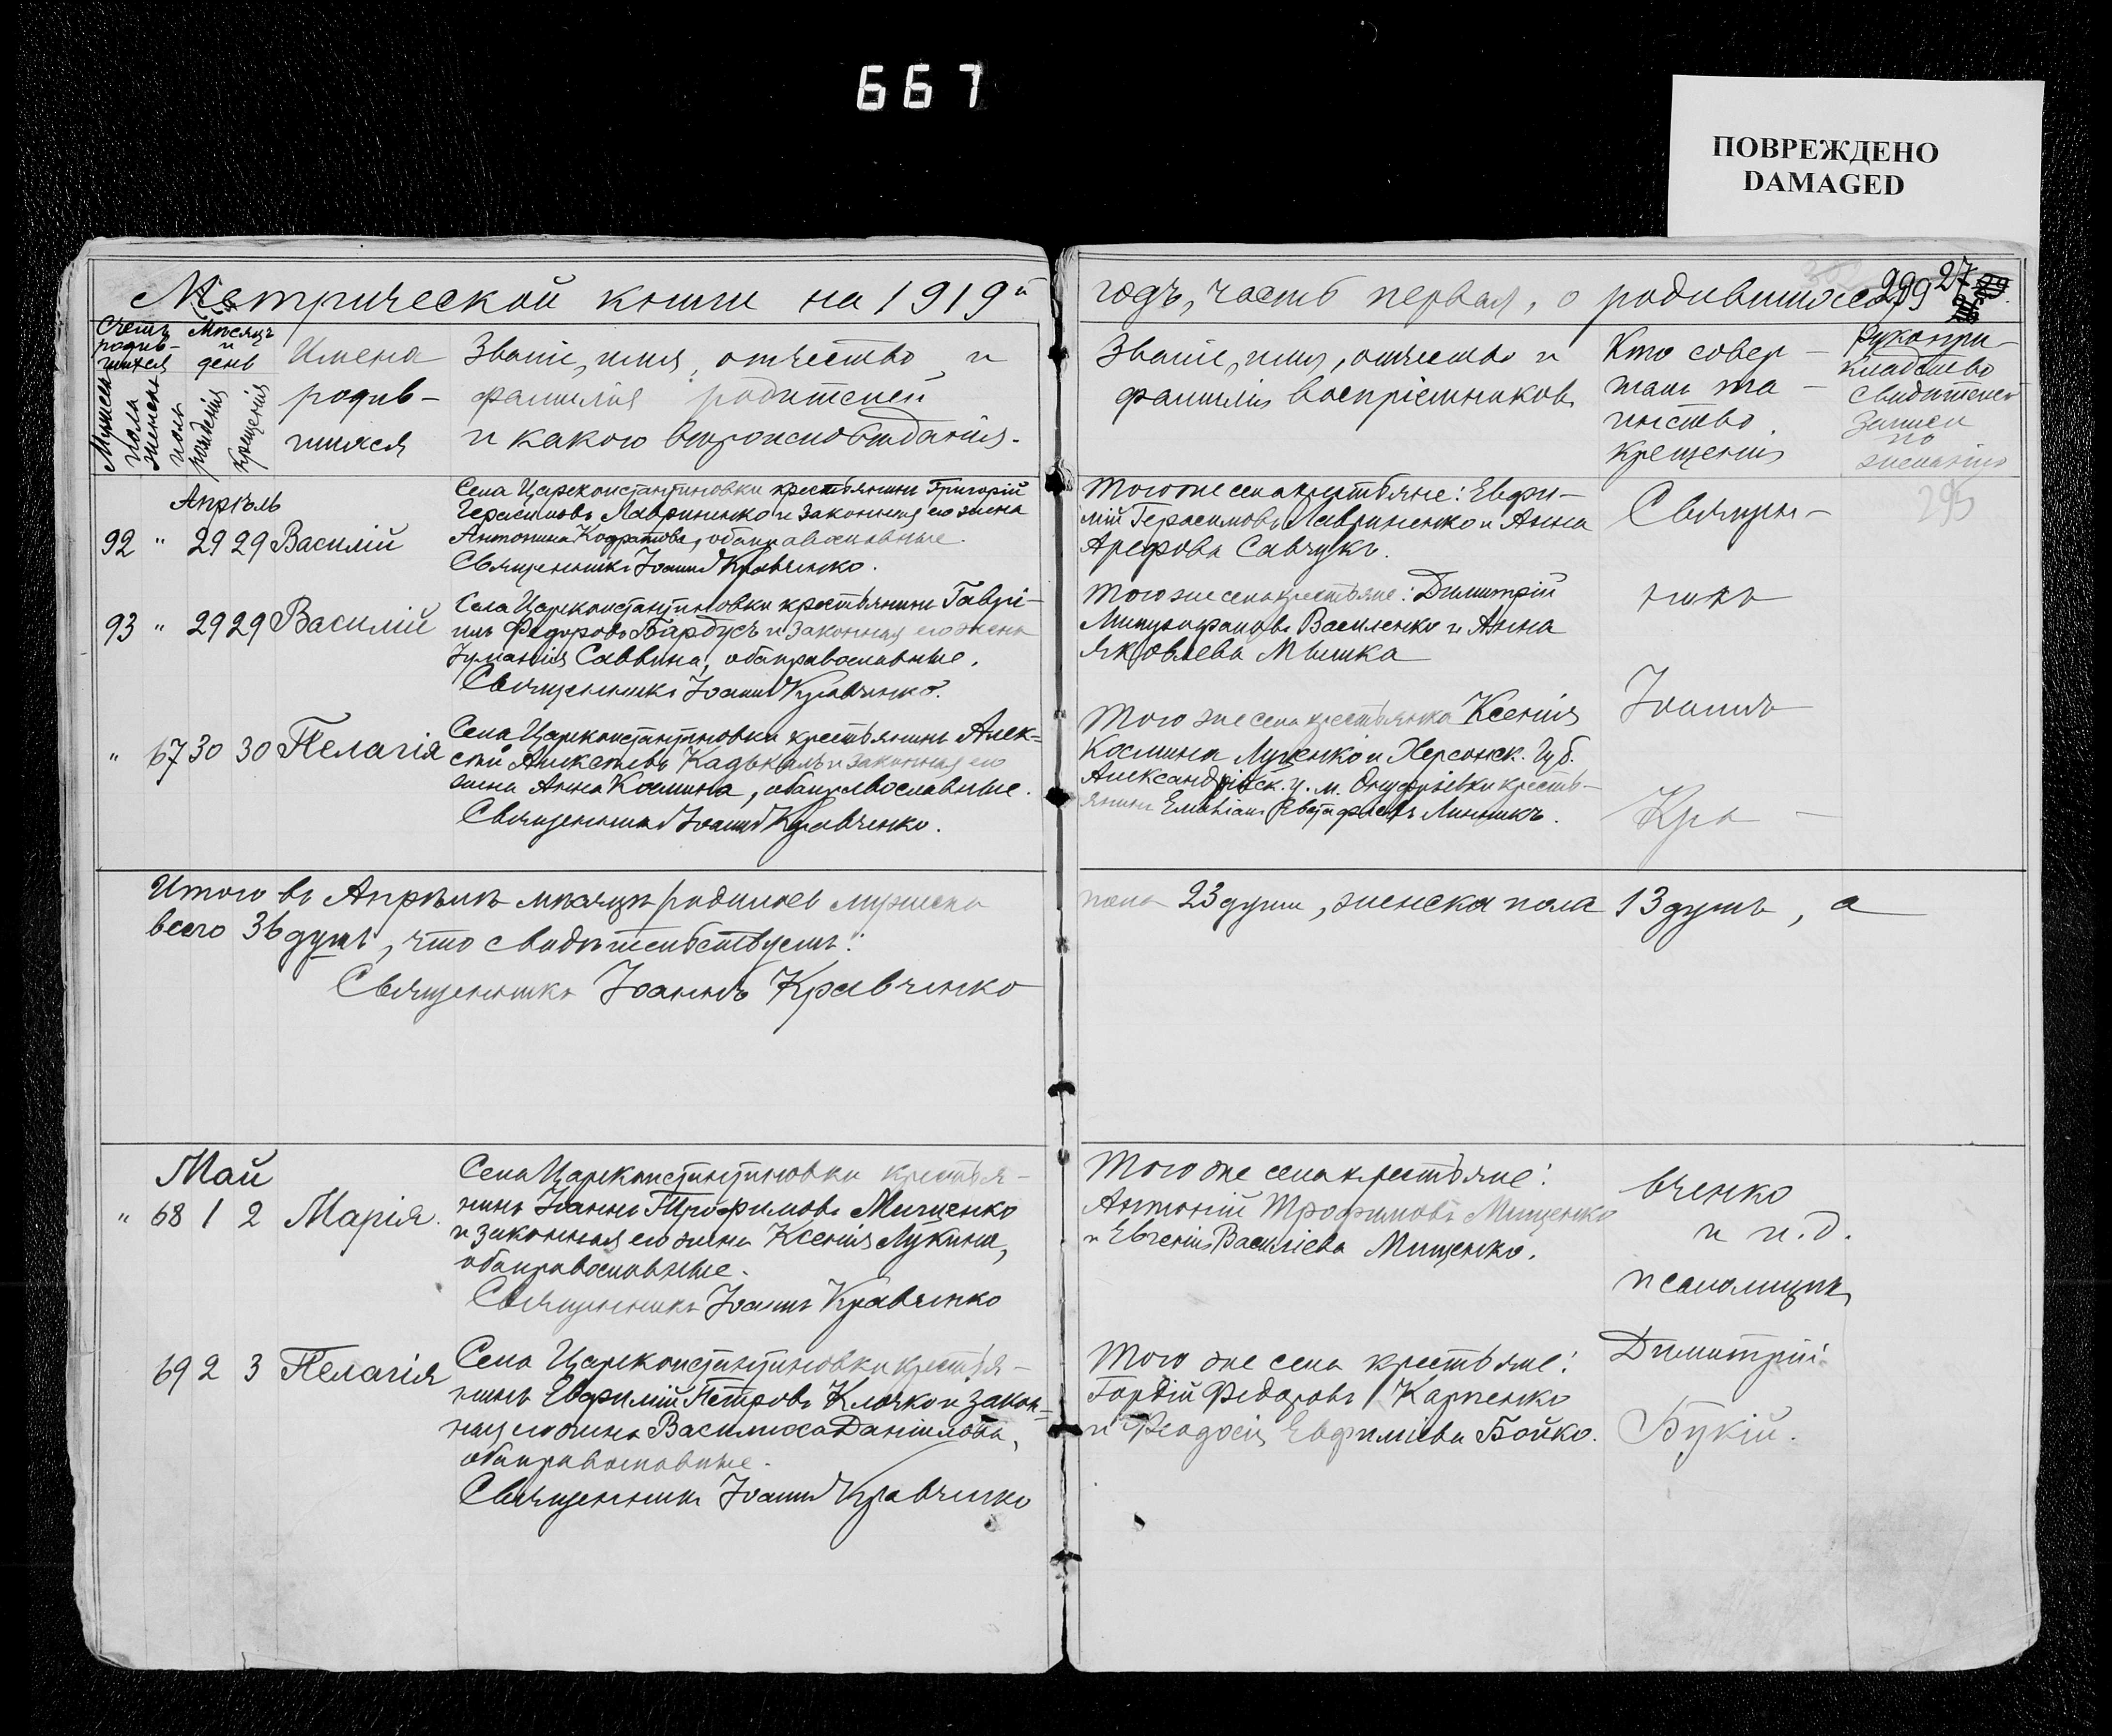 667
ПОВРЕЖДЕНО
DAMAGED
Метрической книги на 1919й
годъ, часть первая, о родившихся
299 27
Счетъ родив-шихся
Мужеска пола
женска пола
Мѣсяцъ и день
рожденія
крещенія
Имена
родив-
шихся
Званіе, имя, отчество и
фамилія родителей
и какого вѣроисповѣданія.
Званіе, имя, отчество и
фамилія воспріемниковъ
Кто совер-
шалъ та-
инство
крещенія
Рукопри-
кладство
свидѣтелей
записи
по
желанію
Апрѣль
92 " 29 29 Василій
Села Цареконстантиновки крестьянинъ Григорій
Герасимовъ Лавриненко и законная его жена
Антонина Кодратова, оба православные.
Священникъ Іоаннъ Кравченко.
Того же села крестьяне: Евфи-
мій Герасимовъ Лавриненко и Анна
Арефова Савчукъ.
Священ-
295
93 " 29 29 Василій
Села Цареконстантиновки крестьянинъ Гаврі-
илъ Федоровъ Барбусъ и законная его жена
Іуліанія Саввина, оба православные.
Священникъ Іоаннъ Кравченко.
Того же села крестьяне: Димитрій
Митрофановъ Василенко и Анна
Яковлева Мышка
никъ
" 67 30 30 Пелагія
Села Цареконстантиновки крестьянинъ Алек-
сѣй Алексѣевъ и законная его
жена Анна Косьмина, оба православные.
Священникъ Іоаннъ Кравченко.
Того же села крестьянка Ксенія
Космина Луценко и Херсонск. губ.
Александрійск. у. м. Онуфріевки кресть-
янинъ Емиліанъ Евстафіевъ Линникъ.
Іоаннъ
Кра-
Итого въ Апрѣлѣ мѣсяцѣ родилось мужеска
пола 23 души, женска пола 13 душъ, а
всего 36 душъ, что свидѣтельствуемъ:
Священникъ Іоаннъ Кравченко
Май
" 68 1 2 Марія.
Села Цареконстантиновки крестья-
нинъ Іоаннъ Трофимовъ Мищенко
и законная его жена Ксенія Лукина,
оба православные.
Священникъ Іоаннъ Кравченко
Того же села крестьяне:
Антоній Трофимовъ Мищенко
и Евгенія Василіева Мищенко.
вченко
и и.д.
псаломщика
69 2 3 Пелагія
Села Цареконстантиновки крестья-
нинъ Евфимій Петровъ Клочко и закон-
ная его жена Василиса Даніилова,
оба православные.
Священникъ Іоаннъ Кравченко
Того же села крестьяне:
Гордій Федоровъ Карпенко
и Феодосія Евфиміева Бойко.
Димитрій
Букій.